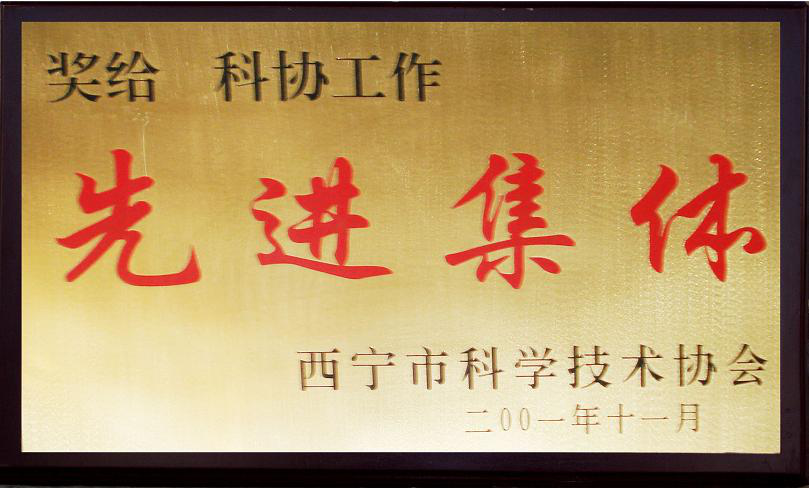 奖给 科协工作
先进集体
西宁市科学技术协会
二00一年十一月